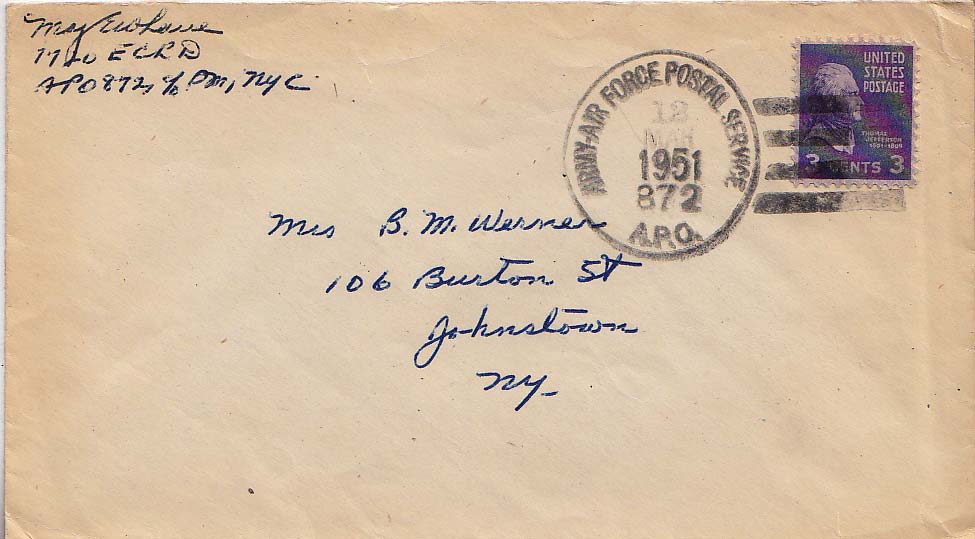 Maj
ECRD
APO 872, c/o PM, NYC
ARMY-AIR FORCE POSTAL SERVICE
12
MAR
1951
872
A.P.O.
UNITED
STATES
POSTAGE
THOMAS
JEFFERSON
1801-1809
3 CENTS 3
Mrs B. M. Werner
106 Burton St
Johnstown
NY-